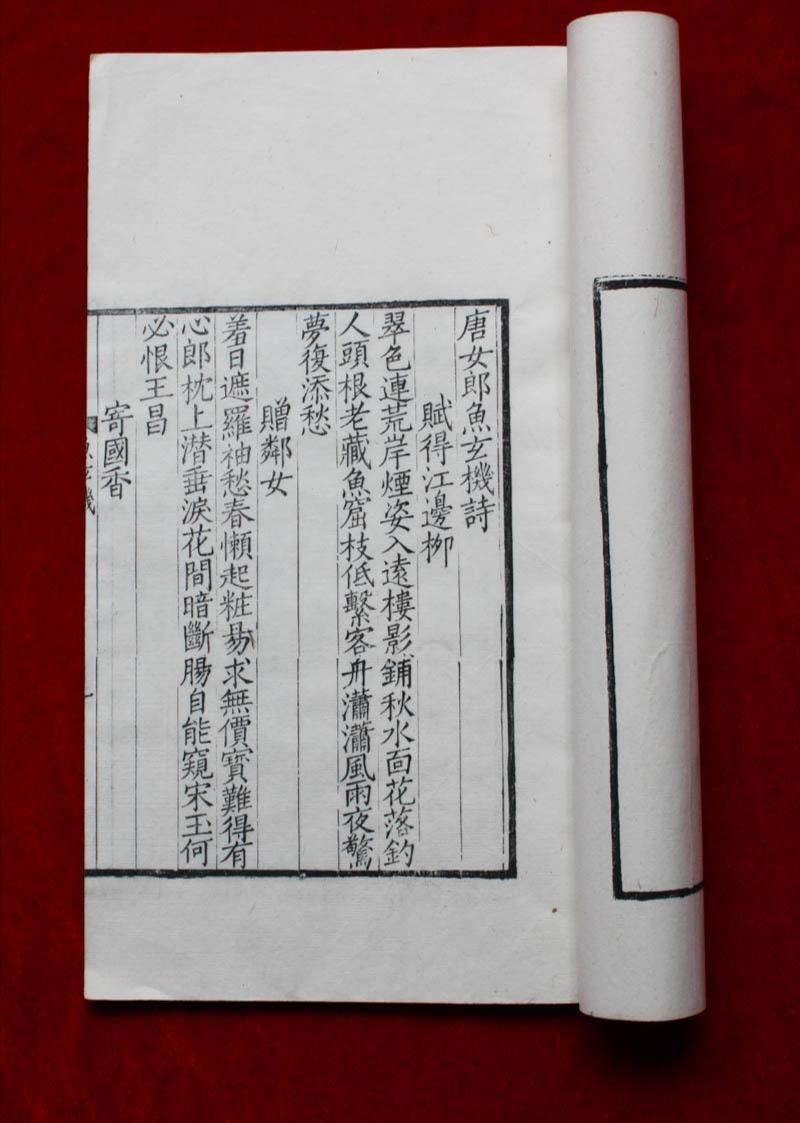 唐女郎魚玄機詩
賦得江邊栁
翠色連荒岸煙姿入遠樓影鋪秋水面花落釣
人頭根老藏魚窟枝低繫客舟瀟瀟風雨夜驚
夢復添愁
贈鄰女
羞日遮羅袖愁春懶起粧易求無價寶難得有
心郎枕上潛垂淚花間暗斷腸自能窺宋玉何
必恨王昌
寄國香
魚玄機
一